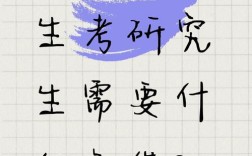 生考研究
生需要什